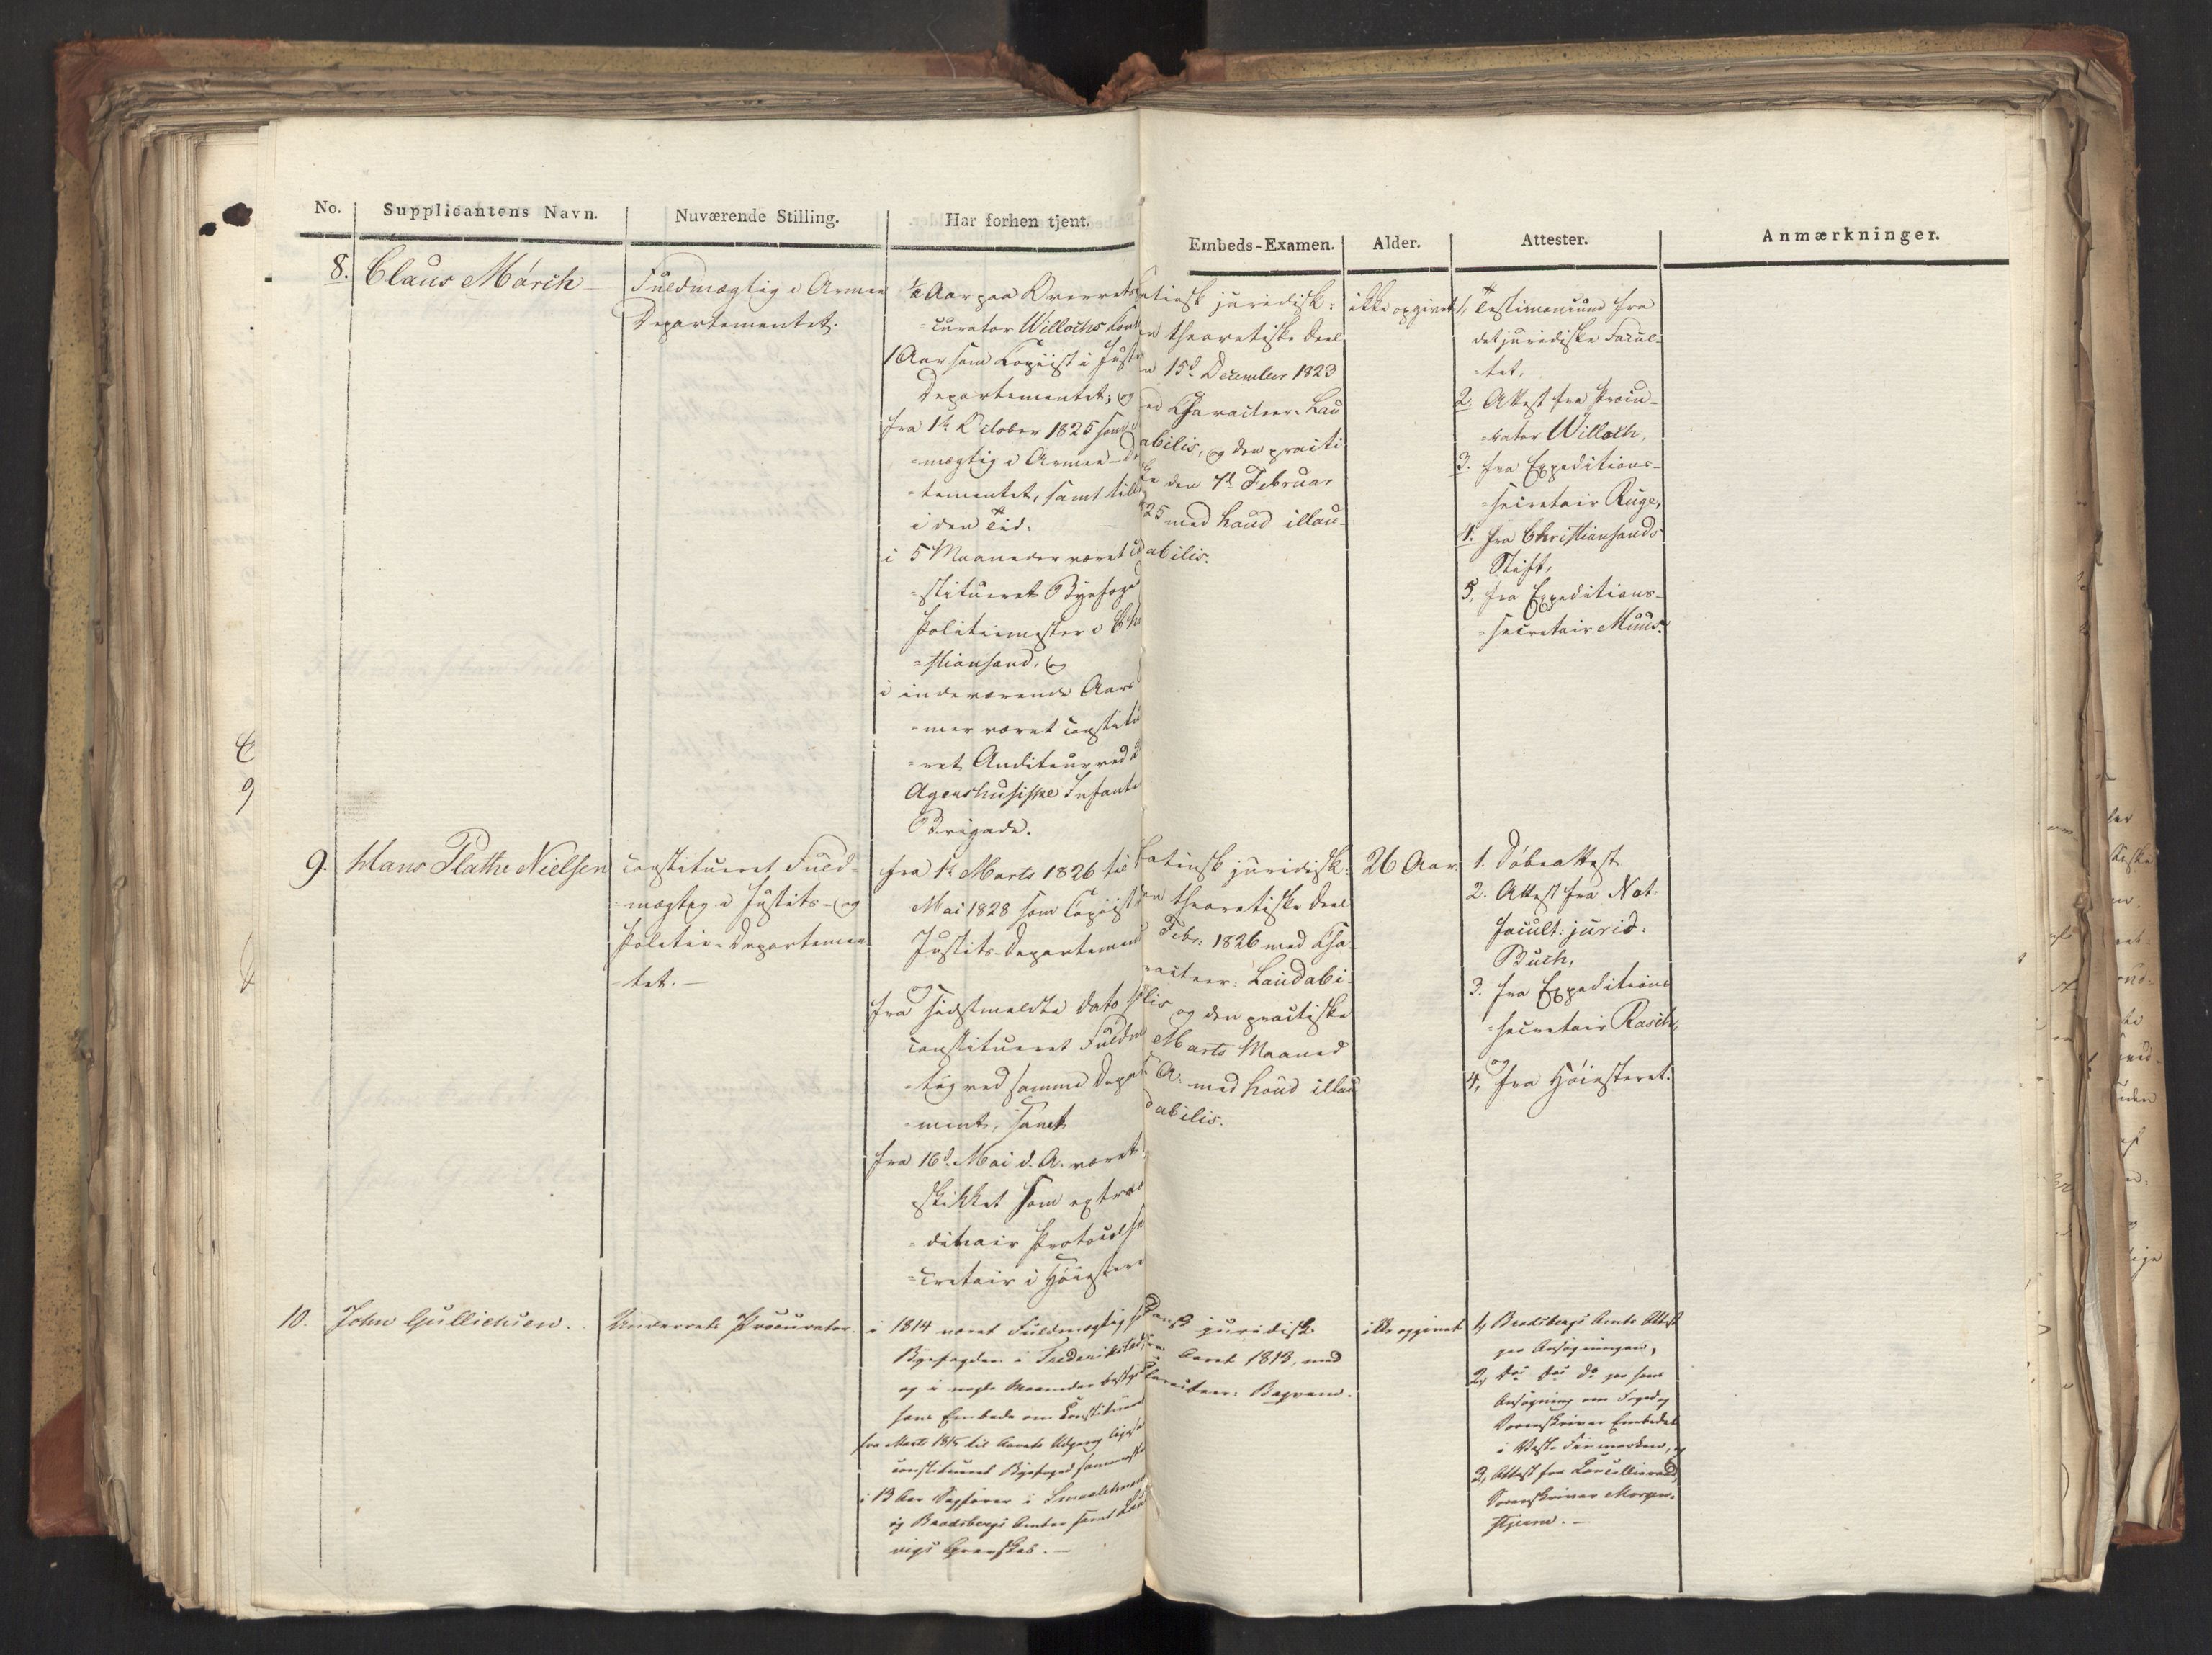 No.
Supplicantens Navn.
Nuværende Stilling.
Har forhen tjent.
Embeds-Examen.
Alder.
Attester.
Anmærkninger.
8.
Claus Mørch
Fuldmægtig i Armee
Departementet.
½ Aar paa Overrets
=curator Willochs
1 Aar som Copiist i
Departementet; og
fra 1te October 1825 som
=mægtig i Armee-
=tementet, samt
i den Tid:
i 5 Maaneder været
=stitueret Byefoged
Politiemester i
=stiansand, og
i indeværende Aars
=mer været constitu
=ret Auditeur ved
Agershusiske Infante
Brigade.
juridisk:
theoretiske Deel
15d December 1823
Characteer: Lau
abilis, og den practi
den 7d Februar
25 med haud illau-
dabilis.
ikke opgivet
1, Testimonium fra
det juridiske Facul-
=tet,
2. Attest fra Procu-
=rator Willoch,
3. fra Expeditions-
=secretair Ruge,
4. fra Christiansands
Stift,
5, fra Expeditions-
=secretair Münd.
9.
Hans Plathe Nielsen
constitueret Fuld-
=mægtig i Justits- og
Politie-Departemen
=tet. —
fra 1te Marts 1826 til
Mai 1828 som Copiist
Justits-Departement
og
fra sidstmeldte dato
constitueret Fuldm
=tig ved samme Depar
=ment, samt
fra 16d Mai d. A. været
skikket som extra
=dinair Protocolse
=cretair i Høieste
Latinsk juridisk:
theoretiske Deel
Febr: 1826 med Cha
racteer: Laudabi
lis og den practiske
Marts Maaned
A. med haud illau
dabilis.
26 Aar.
1. Døbeattest
2. Attest fra Not.
Facult: jurid:
Buch,
3. fra Expeditions
=secretair Rasch,
og
4, fra Høiesteret.
10.
John Gullichsen.
Underrets Procurator.
i 1814 været Fuldmægtig
Byefogden i Frederikstad,
og i nogle Maaneder bestyret
hans Embede som Constitueret
fra Marts 1815 til Aarets Udgang
constitueret Byefoged sammesteds
i 13 Aar Sagfører i Smaalehnene
og Bradsbergs Amter samt
vigs Grevskab. —
Dansk juridisk
Aaret 1813, med
Characteer: Beqvem.
ikke opgivet
1, Bradsbergs Amts Attest
paa Ansøgningen,
2, do paa hans
Ansøgning om Foged og
Sorenskriver Embedet
i Vest Finmarken, og
3, Attest fra Cancellieraad,
Sorenskriver Morgen-
stjerne. —